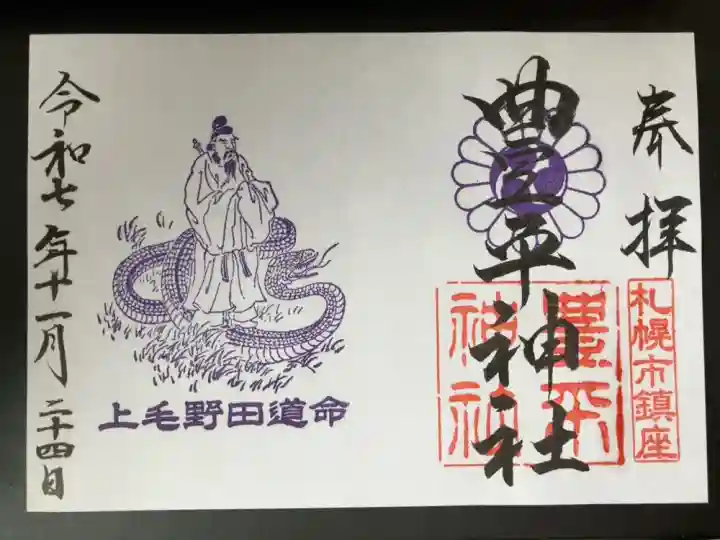 奉拝
札幌市鎮座
豊平神社
豊平神社
上毛野田道命
令和七年十一月二十四日